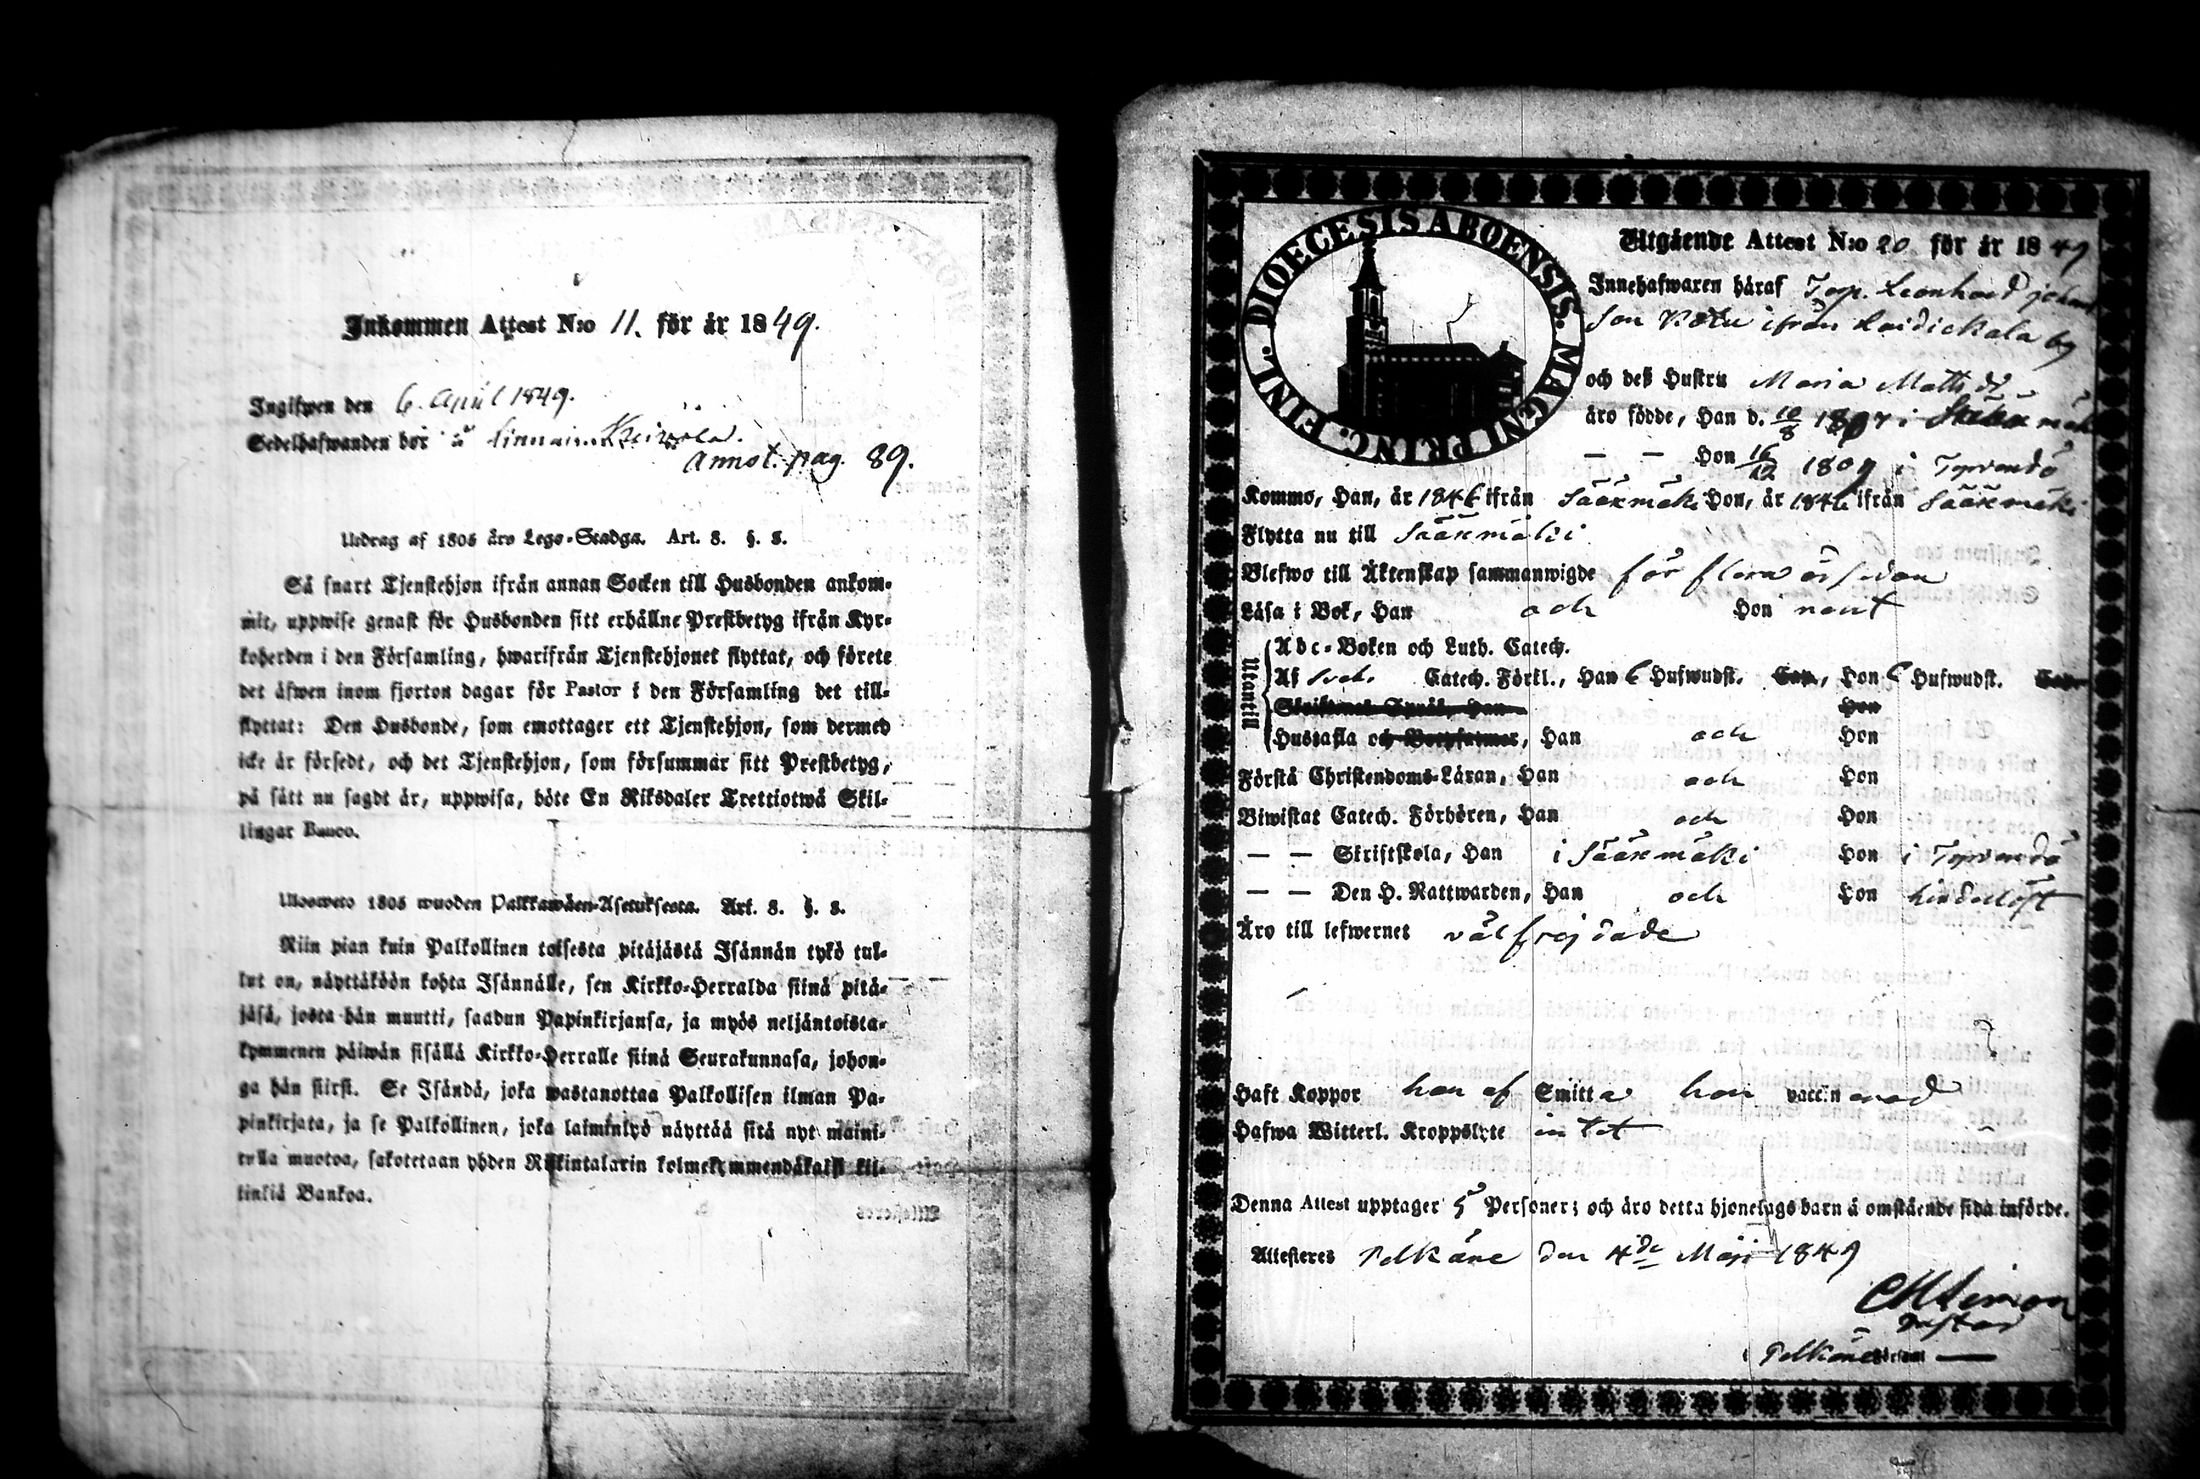 Inkommen Attest N:o 11. för år 1849.
Ingifwen den 6. April 1849.
Sedelhafwanden bor å
Annot. pag. 89.
Utdrag af 1805 års Lego-Stadga. Art. 8. §. 8.
Så snart Tjenstehjon ifrån annan Socken till Husbonden ankom-
mit, uppwise genast för Husbonden sitt erhållne Prestbetyg ifrån Kyr-
koherden i den Församling, hwarifrån Tjenstehjonet flyttat, och förete
det äfwen inom fjorton dagar för Pastor i den Församling det till-
flyttat: Den Husbonde, som emottager ett Tjenstehjon, som dermed
icke är försedt, och det Tjenstehjon, som försummar sitt Prestbetyg,
på sätt nu sagdt är, uppwisa, böte En Riksdaler Trettiotwå Skil-
lingar Banco.
Ulosweto 1805 wuoden Palkkawäen-Asetuksesta. Art. 8. §. 8.
Niin pian kuin Palkollinen toisesta pitäjästä Isännän tykö tul-
lut on, näyttäköön kohta Isännälle, sen Kirkko-Herralda siinä pitä-
jäsä, josta hän muutti, saadun Papinkirjansa, ja myös neljäntoista-
kymmenen päiwän sisällä Kirkko-Herralle siinä Seurakunnasa, johon-
ga hän siirsi. Se Isändä, joka wastanottaa Palkollisen ilman Pa-
pinkirjata, ja se Palkollinen, joka laiminlyö näyttää sitä nyt maini-
tulla muotoa, sakotetaan yhden Riikintalarin kolmekymmendäkaksi kil-
linkiä Bankoa.
DIOECESIS ABOENSIS. MAGNI PRINC. FINL.
Utgående Attest N:o 20 för år 1849
Innehafwaren häraf Torp. Leonhard Johans
son ifrån Laidickala by
och deß Hustru Maria Matts dr
äro födde, Han d. 10/8 i Sääxmäki
— — Hon 16/12 1809 i Tyrvändö
Komme, Han, år 1846 ifrån Sääxmäki Hon, år 1846 ifrån Sääxmäki
Flytta nu till Sääxmäki
Blefwo till Äktenskap sammanwigde för flera år sedan
Läsa i Bok, Han och Hon nöjakt
Utantill
Abc-Boken och Luth. Catech.
Af Sveb. Catech. Förkl., Han 6 Hufwudst. Cap., Hon 6 Hufwudst. Cap.
Skriftenes Språk, Han Hon
Hustafla och Botpsalmer, Han och Hon
Förstå Christendoms-Läran, Han och Hon
Biwistat Catech. Förhören, Han och Hon
— — Skriftskola, Han i Sääxmäki Hon i Tyrvändö
— — Den H. Nattwarden, Han och Hon hinderlöst
Äro till lefwernet välfrejdade
Haft Koppor han af Smitta hon vaccinerad
Hafwa Witterl. Kroppslyte intet
Denna Attest upptager 5 Personer; och äro detta hjonelags barn å omstående sida införde.
Attesteres Pelkäne den 4de Maji 1849
Pastor
i Pelkäne